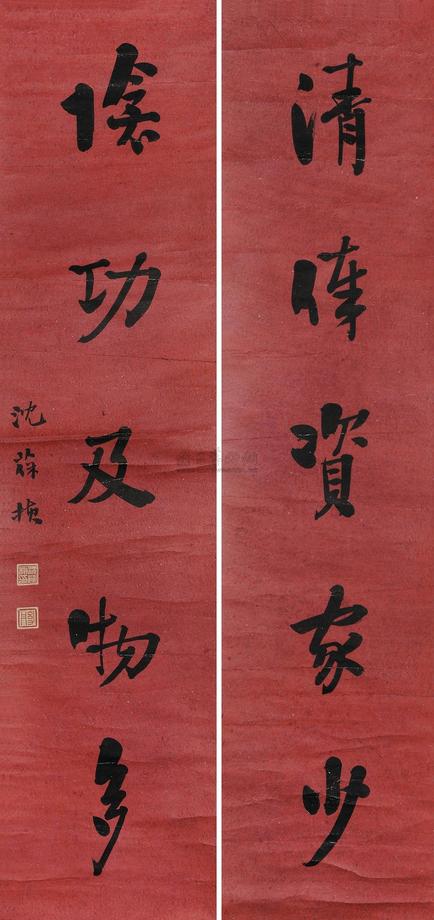 清俸資家少
陰功及物多
沈葆楨